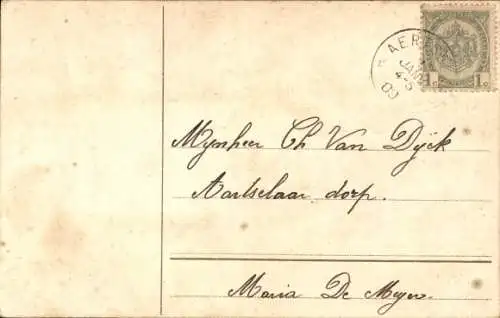 JAN
4-5
09
1c. 1c.
Mynheer Ch Van Dÿck
Aartselaar dorp.
Maria De Meyer